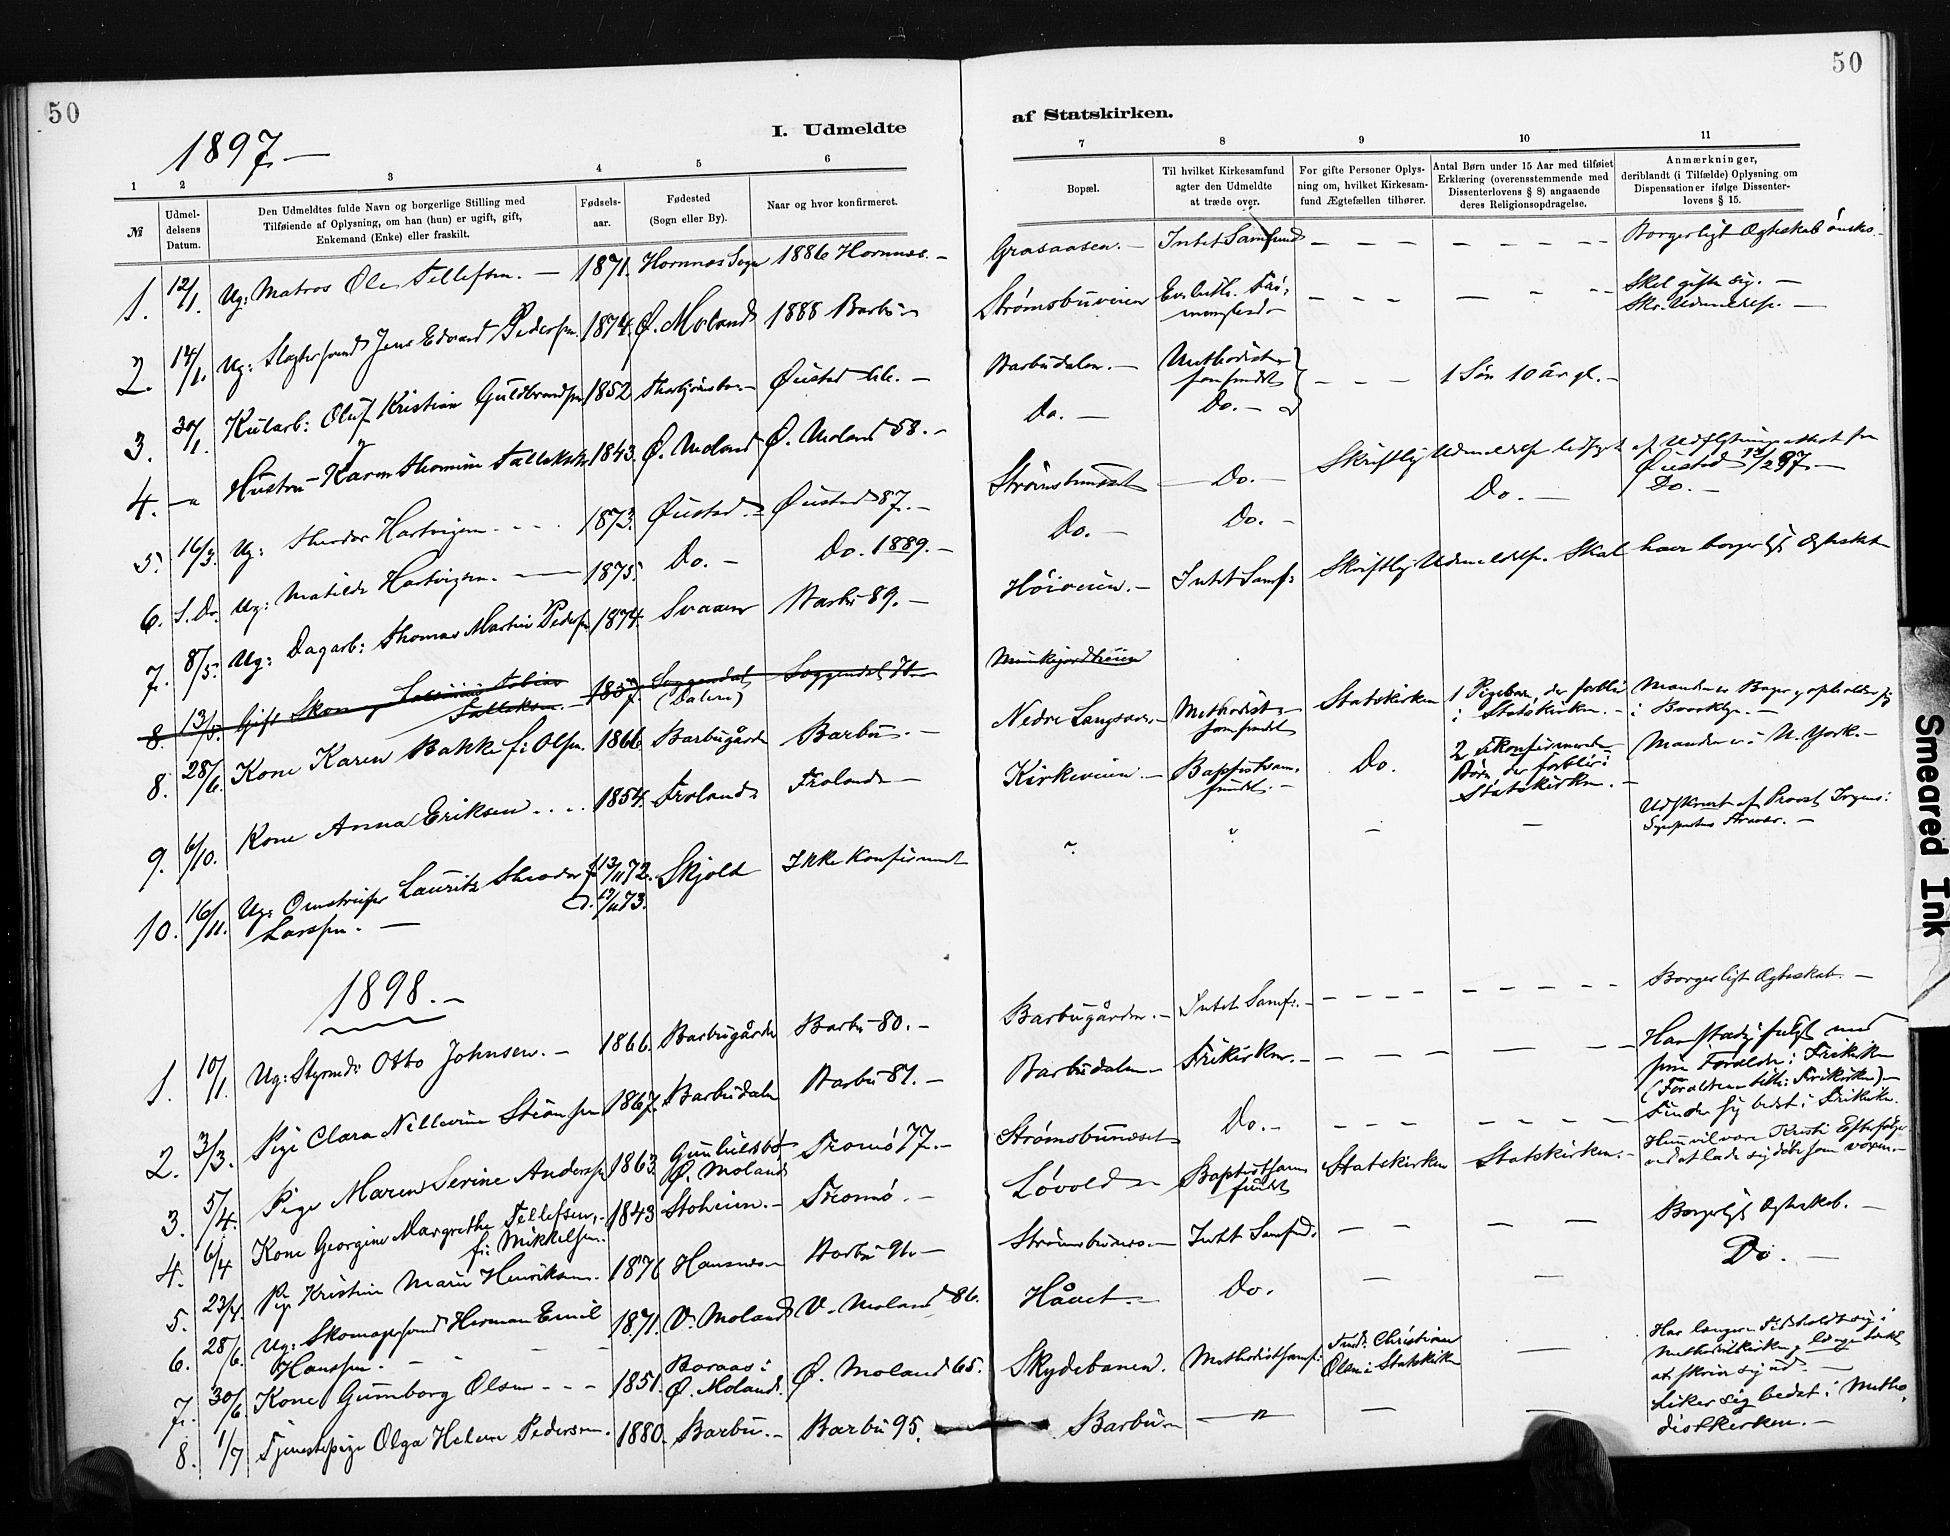 50
50
1897.—
I. Udmeldte
af Statskirken.
1
2
3
4
5
6
7
8
9
10
11
№
Udmel-
delsens
Datum.
Den Udmeldtes fulde Navn og borgerlige Stilling med
Tilføiende af Oplysning, om han (hun) er ugift, gift,
Enkemand (Enke) eller fraskilt.
Fødsels-
aar.
Fødested
(Sogn eller By).
Naar og hvor konfirmeret.
Bopæl.
Til hvilket Kirkesamfund
agter den Udmeldte
at træde over.
For gifte Personer Oplys-
ning om, hvilket Kirkesam-
fund Ægtefællen tilhører.
Antal Børn under 15 Aar med tilføiet
Erklæring (overensstemmende med
Dissenterlovens § 8) angaaende
deres Religionsopdragelse.
Anmærkninger,
deriblandt (i Tilfælde) Oplysning om
Dispensationer ifølge Dissenter-
lovens § 15.
1. 12/1. Ug: Matros Ole Tellefsen. — 1871. Hornnes Sogn 1886 Hornnes. — Grasaasen. — Intet Samfund — — — — — — — Borgerligt Ægteskab ønskes.
2. 14/1. Ug: Jens Edvard Pedersen. 1874. Ø. Moland 1888 Barbu — Strømsbuveien Ev. luth. Fri-
menighed — — — — — — — Skal gifte sig. —
Skr. Udmeldelse. —
3. 30/1. Kularb: Oluf Kristian Guldbrandsen 1852 Øiestad — Barbudalen. — Methodist-
samfundet — — — 1 Søn 10 år gl. —
4. — " Hustru — Karen Thomine 1843. Ø. Moland Ø. Moland 58. — Do. — Do. —
5. 16/3. Ug: Theodor Hartvigsen. — 1873. Øiestad. — Øiestad 87. — Strømsbunæset — Do. — Skriftlig Udmeldelse ledsaget af Udflytningsattest fra
Øiestad 97. —
6. S. Do. Ug: Matilde Hartvigsen. — 1875. Do. — Do. 1889. — Do. — Do. — Do. — Do. —
7. 8/5. Ug: Dagarb: Thomas Martin Pedersen 1874. Barbu 89. — Høiveien. — Intet Samf: Skriftlig Udmeldelse. Skal have borgerligt Ægteskab
8. 13/5. Gift Skom. Tobias
Tallaksen. — 1857. Soggendal
(Dalene) Soggendal
8. 28/6. Kone Karen Bakke f: Olsen. 1866. Barbugården Barbu. — Nedre Langsæ — Methodist-
samfundet Statskirken 1 Pigebarn, der forbliver
i Statskirken. — Manden er Bager og opholder sig
i Brooklyn. —
9. 6/10. Kone Anna Eriksen . . . 1854. Froland Froland — Kirkeveien. — Baptistsam-
fundet. — Do. 2 ukonfirmerede
Børn, der forbliver i
Statskirken. — Manden er i N. York. —
10. 16/11. Ug: Lauritz Theodor
Larssen. — f. 13/11 72.
d. 73. Skjold Ikke Konfirmeret " " — — Udskrevet af Provst
1898. —
1. 10/1. Ug: Styrmd: Otto Johnsen. — 1866. Barbugården Barbu 80. — Barbugården. — Intet Samf. — — — — — — — — — — Borgerligt Ægteskab. —
2. 3/3. Pige Clara Nillevine 1867. Barbudalen Barbu 81. — Barbudalen — Frikirken. — — — — — — — Har stadig fulgt med
sine Forældre i Frikirken
3. 5/4. Pige Maren Serine Anderssen 1863. Gunhildsbø
Ø. Moland Tromø 77. — Strømsbunæset Do. — — — — — — — — — Finder sig bedst i Frikirken.
4. 6/4 Kone Georgine Margrethe Tellefsen, —
f: Mikkelsen. 1843 Stoleien. — Tromø. — Løvold — Baptistsam-
fundet Statskirken Statskirken. — Hun vil være Kristi Efterfølger
ved at lade sig døbe som voxen. —
5. 23/4. Pige Kristine Marie Henriksen. 1876 Hansnes — Barbu 91. — Strømsbunes. — Intet Samfund. — — — — Borgerligt Ægteskab. —
6. 28/6. Ug: Skomagersvend Herman Emil
Hanssen. — 1871. V. Moland V. Moland 86. Håvet. — Do. — — Do. —
7. 30/6 Kone Gumborg Olsen — — — 1851. Boraas i
Ø. Moland. Ø. Moland 65. Skydebanen. Methodistsamf: Christian
Olsen i Statskirken Har længere Tid holdt sig i
Methodistkirken, længe tænkt
at skrive sig ud. —
8. 1/7 Tjenestepige Olga Helene Pedersen. 1880. Barbu. — Barbu 95. Barbu — — " — — — Liker sig bedst i Metho-
distkirken. —
Smeared Ink